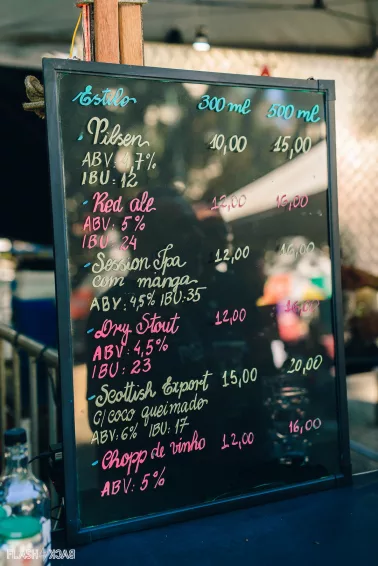 Estilo 300 ml 500 ml
- Pilsen 10,00 15,00
ABV: 4,7%
IBU: 12
- Red ale 12,00 16,00
ABV: 5%
IBU: 24
- Session Ipa 12,00 16,00
com manga
ABV: 4,5% IBU: 35
- Dry Stout 12,00 16,00
ABV: 4,5%
IBU: 23
- Scottish Export 15,00 20,00
c/coco queimado
ABV: 6% IBU: 17
- Chopp de vinho 12,00 16,00
ABV: 5%
FLASH BACK